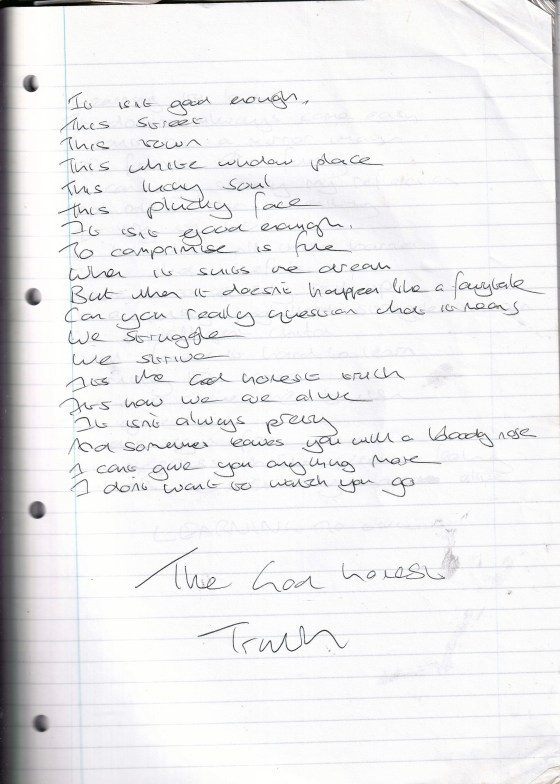 It isnt good enough.
This street
This town
This white window place
This lucky soul
This plucky face
It isnt good enough.
To comprimise is fine
When it suits the dream
But when it doesnt happen like a fairytale
Can you really question what it means
We struggle
We strive
Its the god honest truth
Its how we are alive
It isnt always pretty
And sometimes leaves you with a bloody nose
I cant give you anything more
I dont want to watch you go
The God honest
Truth